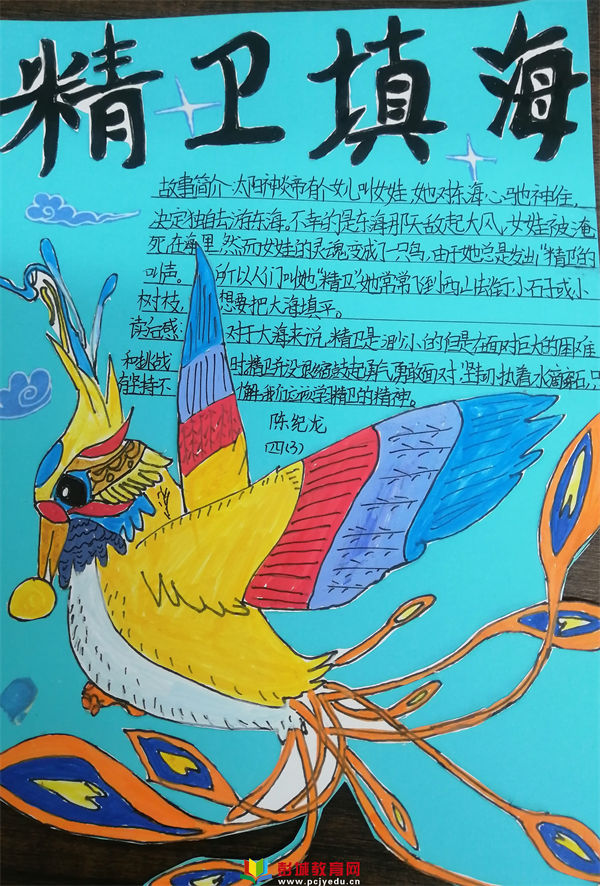 精卫填海
故事简介:太阳神炎帝有个女儿叫女娃,她对东海心驰神往,
决定独自去游东海。不幸的是东海那天敌起大风,女娃被淹
死在海里,然而女娃的灵魂变成了一只鸟,由于她总是发出"精卫"的
叫声。所以人们叫她"精卫"她常常飞到西山去衔小石子或小
树枝,想要把大海填平。
读后感 对于大海来说,精卫是渺小的但是在面对巨大的困难
和挑战时精卫并没退缩鼓起勇气勇敢面对,坚韧执着,水滴穿石,只
有坚持不懈,我们应该学精卫的精神。
陈纪龙
四(3)
彭城教育网
www.pcjyedu.cn